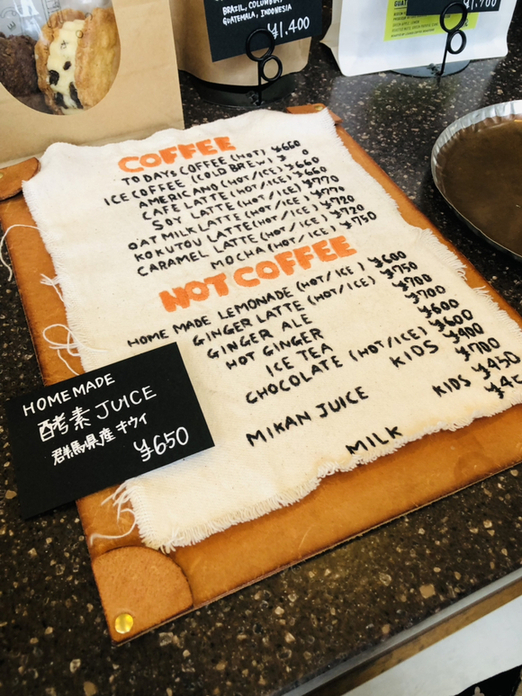 BRAZIL, COLUMBIA
GUATEMALA, INDONESIA
¥1,400
COFFEE
TODAYS COFFEE (HOT) ¥660
ICE COFFEE (COLD BREW)
AMERICANO (HOT/ICE) ¥660
CAFE LATTE (HOT/ICE) ¥660
SOY LATTE (HOT/ICE) ¥770
OAT MILK LATTE (HOT/ICE) ¥770
KOKUTOU LATTE (HOT/ICE) ¥720
CARAMEL LATTE (HOT/ICE) ¥720
MOCHA (HOT/ICE) ¥750
NOT COFFEE
HOME MADE LEMONADE (HOT/ICE) ¥600
GINGER LATTE (HOT/ICE) ¥750
GINGER ALE ¥700
HOT GINGER ¥700
ICE TEA ¥600
CHOCOLATE (HOT/ICE) ¥600
KIDS ¥400
MIKAN JUICE ¥700
KIDS ¥450
MILK
HOME MADE
酵素 JUICE
群馬県産 キウイ
¥650